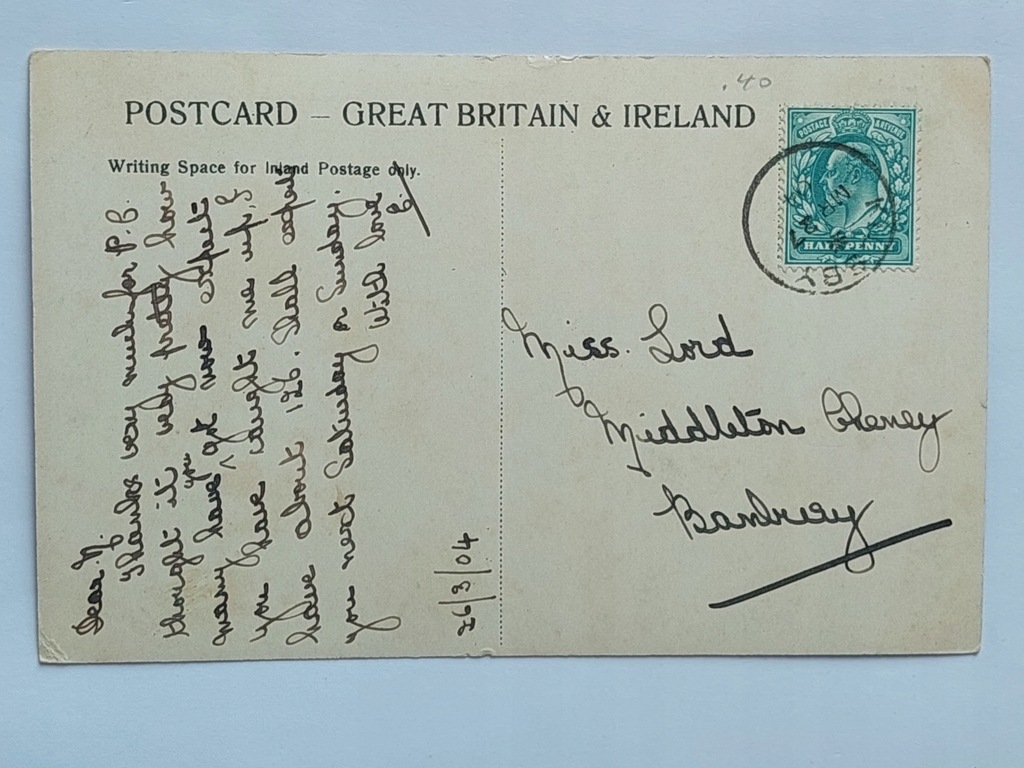 .40
POSTCARD – GREAT BRITAIN & IRELAND
Writing Space for Inland Postage only.
POSTAGE & REVENUE
HALFPENNY
Dear N.
Thanks very much for P.C.
thought it very pretty how
many have you got now expect
you have caught me up, I
have about 126. Shall expect
you next Saturday or Sunday.
With love
E
26/3/04
Miss. Lord
Middleton Cheney
Banbury